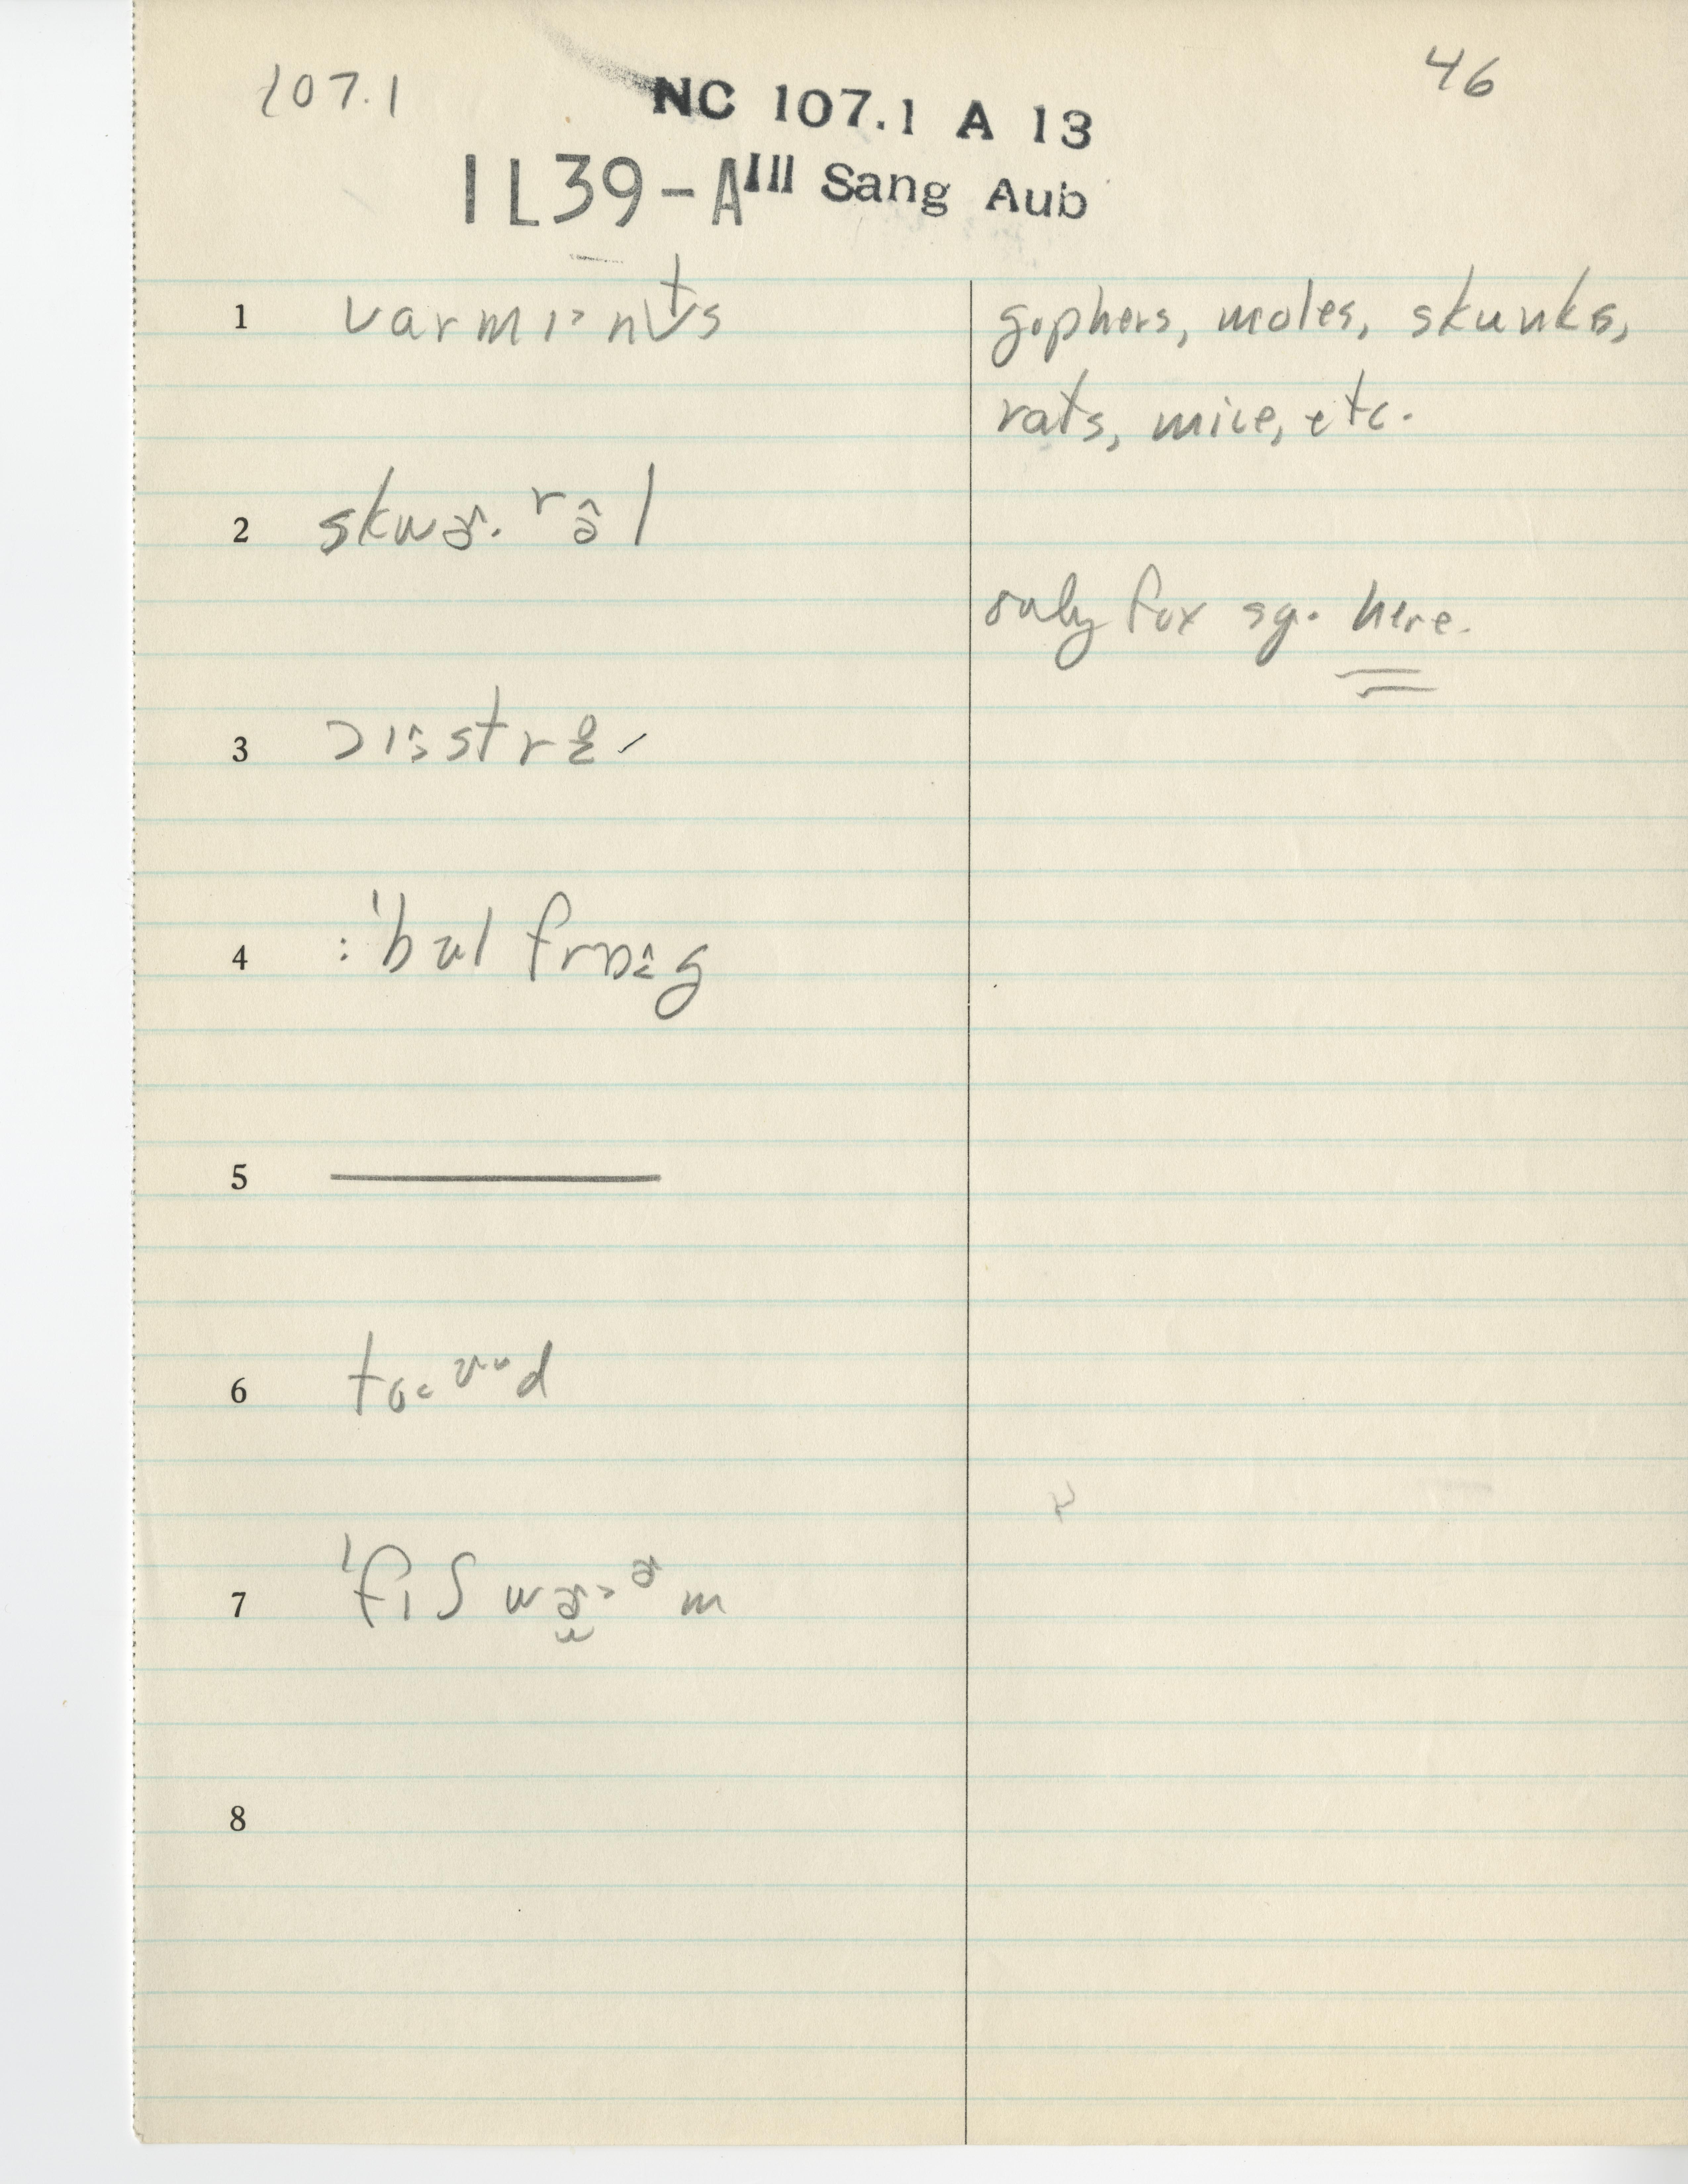 107.1
46
NC 107.1 A 13
IL39-A
Ill Sang Aub
1 varmı˃nts
gophers, moles, skunks,
rats, mice, etc.
2 skwɚ. rə̂l
only fox sq. here.
3 ɔɪstrə
4 : ˈbʊl frɒg
5
6
7 ˈfɪʃ wɚ˃ɚm
8